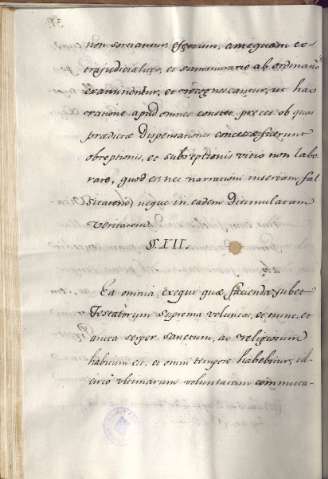 non sortiantur effectum, antequam ex-
trajudicialiter, et summarie ab ordinario
examinentur, et recognoscantur, ut hac
ratione apud omnes constet preces ob quas
praedictae dispensationes concessae fuerunt
obreptionis, et subreptionis vitio non labo
rare, quod est nec narrationi insertam fal
sitatem, neque in eadem dissimulatam
veritatem.
§. XII.
Ea omnia exequi quae facienda jubet
Testatorum suprema voluntas, et nunc, et
antea semper sanctum, ac religiosum
habitum est, et omni tempore habebitur, id-
circo ultimarum voluntatum commuta-